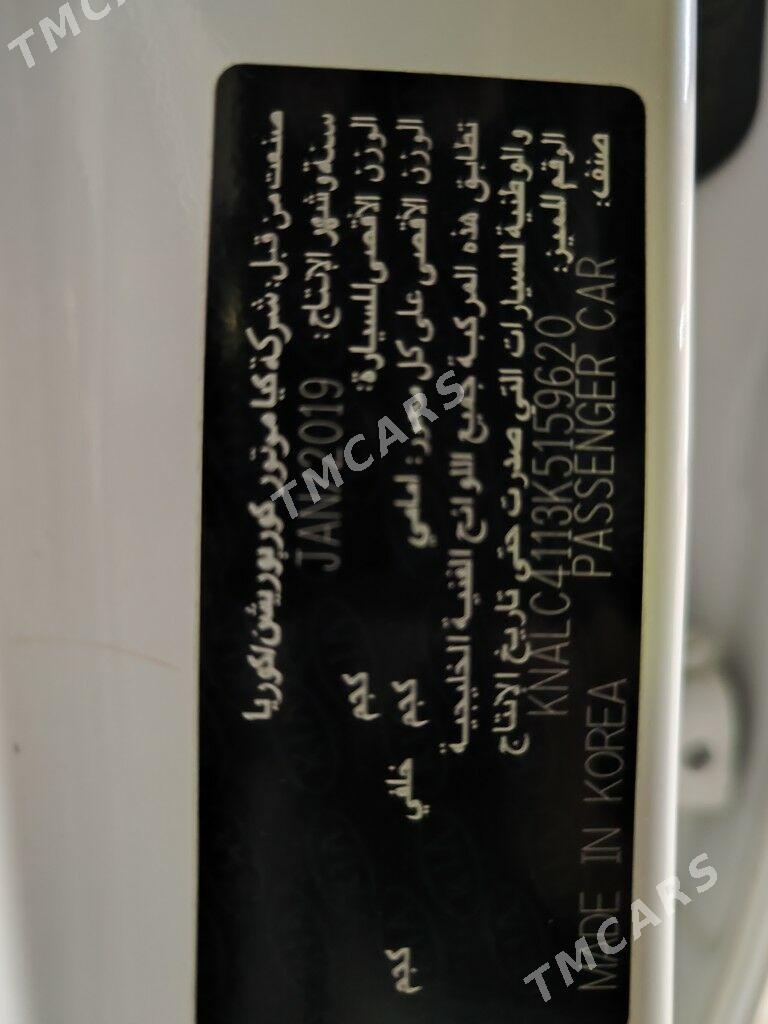 صنعت من قبل: شركة كيا موتور كوربوريشن/كوريا
سنة وشهر الإنتاج: JAN. 2019
الوزن الأقصى للسيارة: كجم
الوزن الأقصى على كل محور: امامي كجم خلفي كجم
تطابق هذه المركبة جميع اللوائح الفنية الخليجية
والوطنية للسيارات التي صدرت حتى تاريخ الإنتاج
الرقم المميز: KNALC4113K5159620
صنف: PASSENGER CAR
MADE IN KOREA
TMCARS
TMCARS
TMCARS